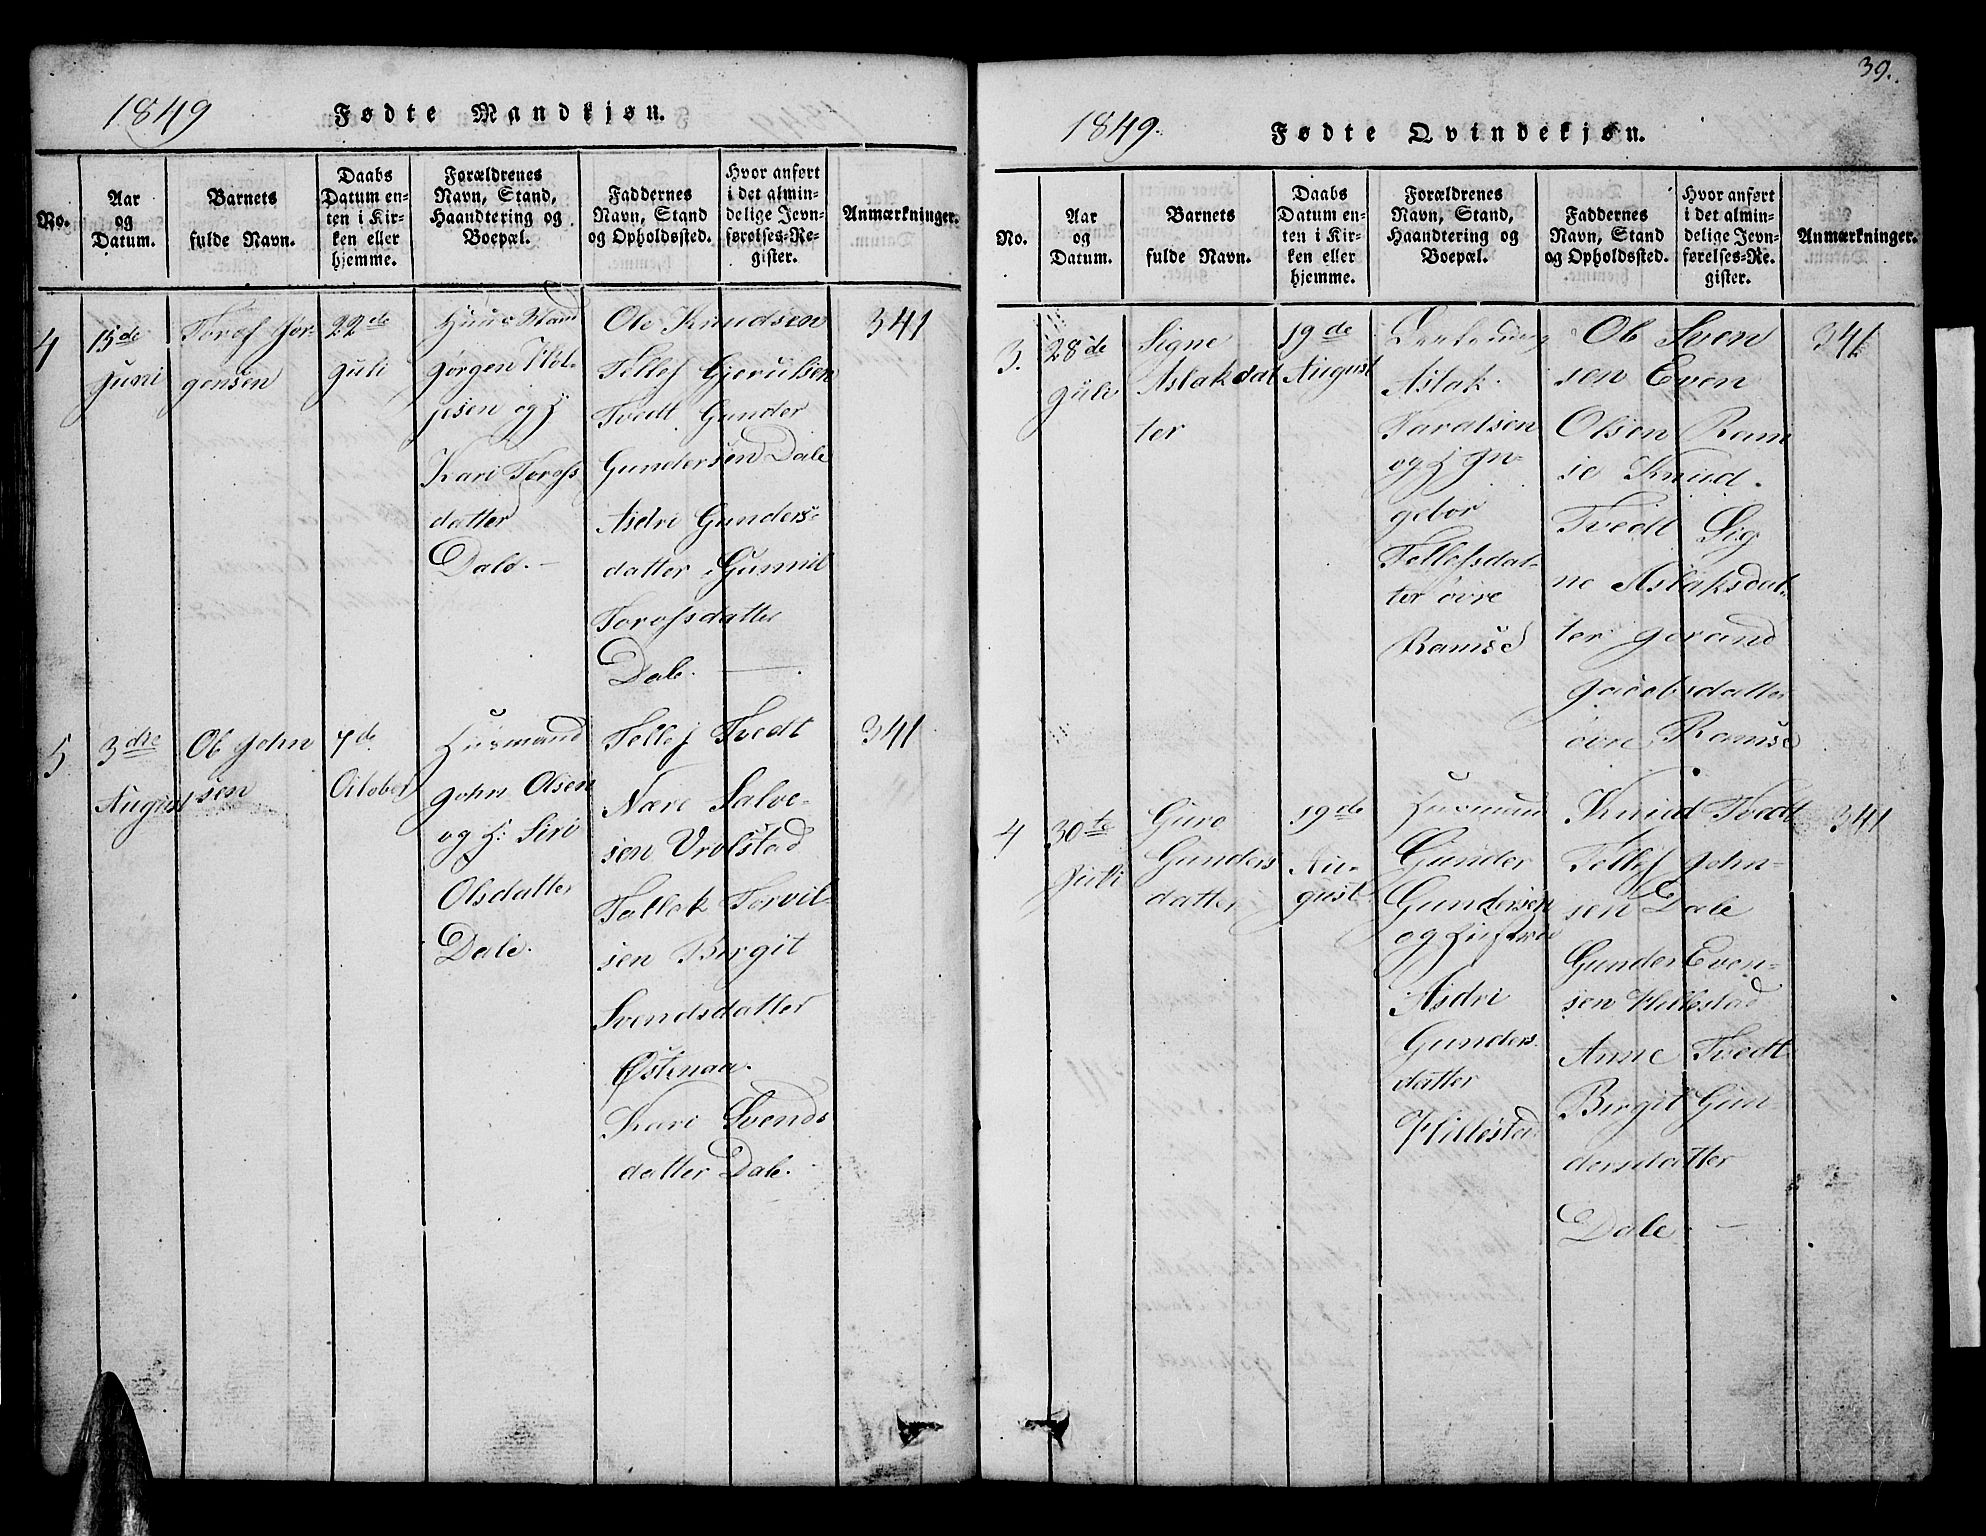 1849
Fødte Mandkjøn.
No.
Aar
og
Datum.
Barnets
fulde Navn.
Daabs
Datum en-
ten i Kir-
ken eller
hjemme.
Forældrenes
Navn, Stand,
Haandtering og
Boepæl.
Faddernes
Navn, Stand
og Opholdssted.
Hvor anført
i det almin-
delige Jevn-
førelses-Re-
gister.
Anmærkninger.
4
15de
Juni
Toref Jør-
gensen
22de
Juli
Huus Mand
Jørgen
og H
Kari Torofs
datter
Dale.
Ole Knudsen
Tellef Gjerulsen
Tvedt Gunder
Gundersen Dale
Asdri Gunders-
datter Gunnil
Torofsdatter
Dale.
341
5
3die
August
Ole John
sen
7de
October
Husmand
John Olsen
og H: Siri
Olsdatter
Dale.
Tellef Tvedt
Nære Salve-
sen Vrolstad
Tallak Torvil-
sen Birgit
Svendsdatter
Østenaa.
Kari Svends
datter Dale.
341
39.
1849.
Fødte Qvindekjøn.
No.
Aar
og
Datum.
Barnets
fulde Navn.
Daabs
Datum en-
ten i Kir-
ken eller
hjemme.
Forældrenes
Navn, Stand,
Haandtering og
Boepæl.
Faddernes
Navn, Stand
og Opholdssted.
Hvor anført
i det almin-
delige Jevn-
førelses-Re-
gister.
Anmærkninger.
3.
28de
Juli
Signe
Aslakdat
ter
19de
August
Aslak
Taralsen
og H In-
gebor
Tellefsdat-
ter øvre
Ramse
Ole Sven
sen Even
Olsen Ram
se Knud
Tvedt Sig
ne Aslaksdat-
ter Jorand
Jacobsdatter
øvre Ramse
341
4
30te
Juli
Guro
Gunders
datter
19de
Au-
gust
Husmand
Gunder
Gundersen
og Hustroe
Asdri
Gunders
datter
Hillestad
Knud Tvedt
Tellef John-
sen Dale
Gunder Even-
sen Hillestad
Anne Tvedt
Birgit Gun
dersdatter
Dale.
341